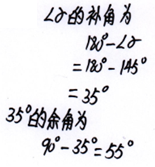 ∠α的补角为
180°-∠α
=180°-145°
=35°
35°的余角为
90°-35°=55°